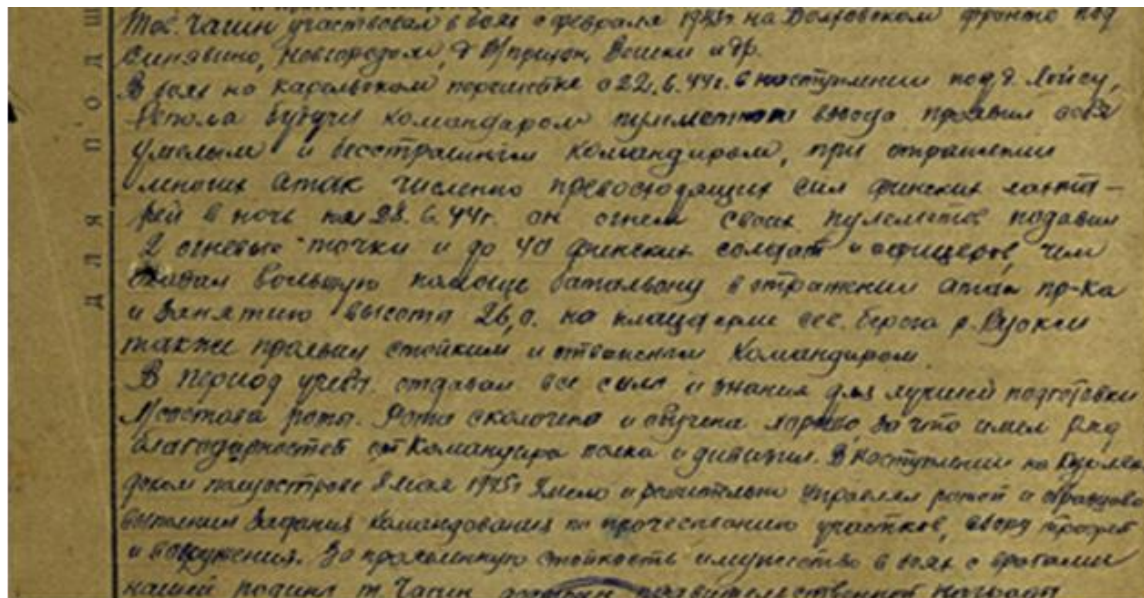 Тов. Чагин участвовал в боях с февраля 1943г. на Волховском фронте под
Синявино, Новгородом, д.
и др.
В боях на карельском перешейке с 22.6.44г. в наступлении под д.
Репола будучи командиром пулеметного взвода проявил себя
умелым и бесстрашным командиром, при отражении
многих атак численно превосходящих сил финских лахта-
рей в ночь на 28.6.44г. он огнем своих пулеметов подавил
2 огневые точки и до 40 финских солдат и офицеров, чем
оказал большую помощь батальону в отражении атак пр-ка
и занятию высоты 26,0. на плацдарме сев. берега р. Вуокси
также проявил стойким и отважным командиром.
В период учебы отдавал все силы и знания для лучшей подготовки
л/состава роты. Рота сколочена и обучена хорошо, за что имел ряд
благодарностей от Командира полка и дивизии. В наступлении на Курлян-
дском полуострове 8 мая 1945г умело и решительно управлял ротой и образцово
выполнил задания командования по прочесыванию участков, сбору трофеев
и вооружения. За проявленную стойкость и мужество в боях с врагами
нашей родины т. Чагин достоин правительственной награды
ДЛЯ ПОДШ